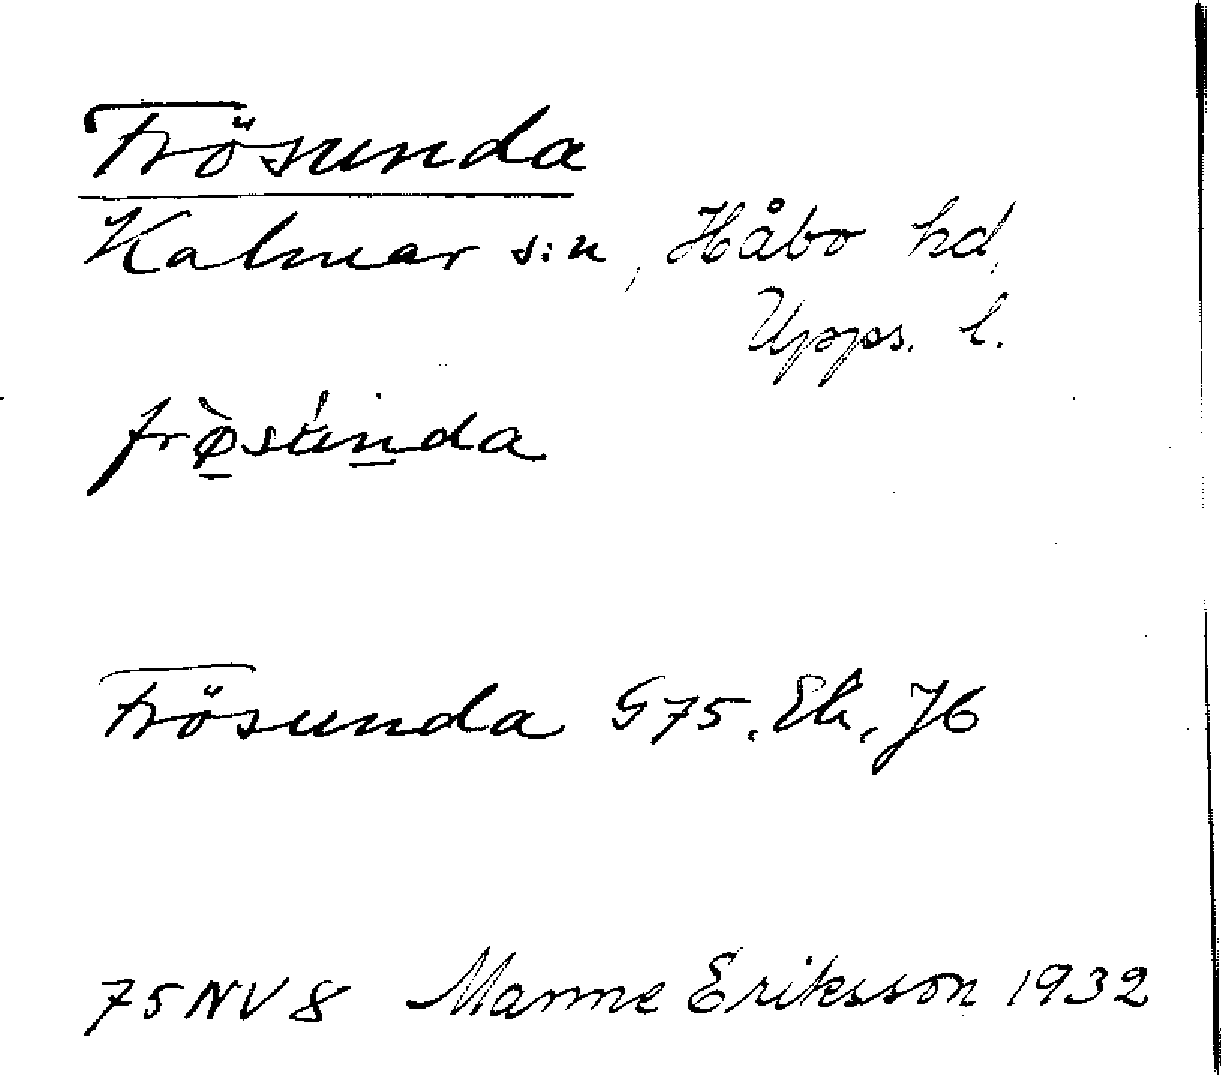 Frösunda
Kalmar s:n, Håbo hd,
Upps. l.
frø̀súnda
Frösunda G75, Ek, J6
75NV8 Manne Eriksson 1932